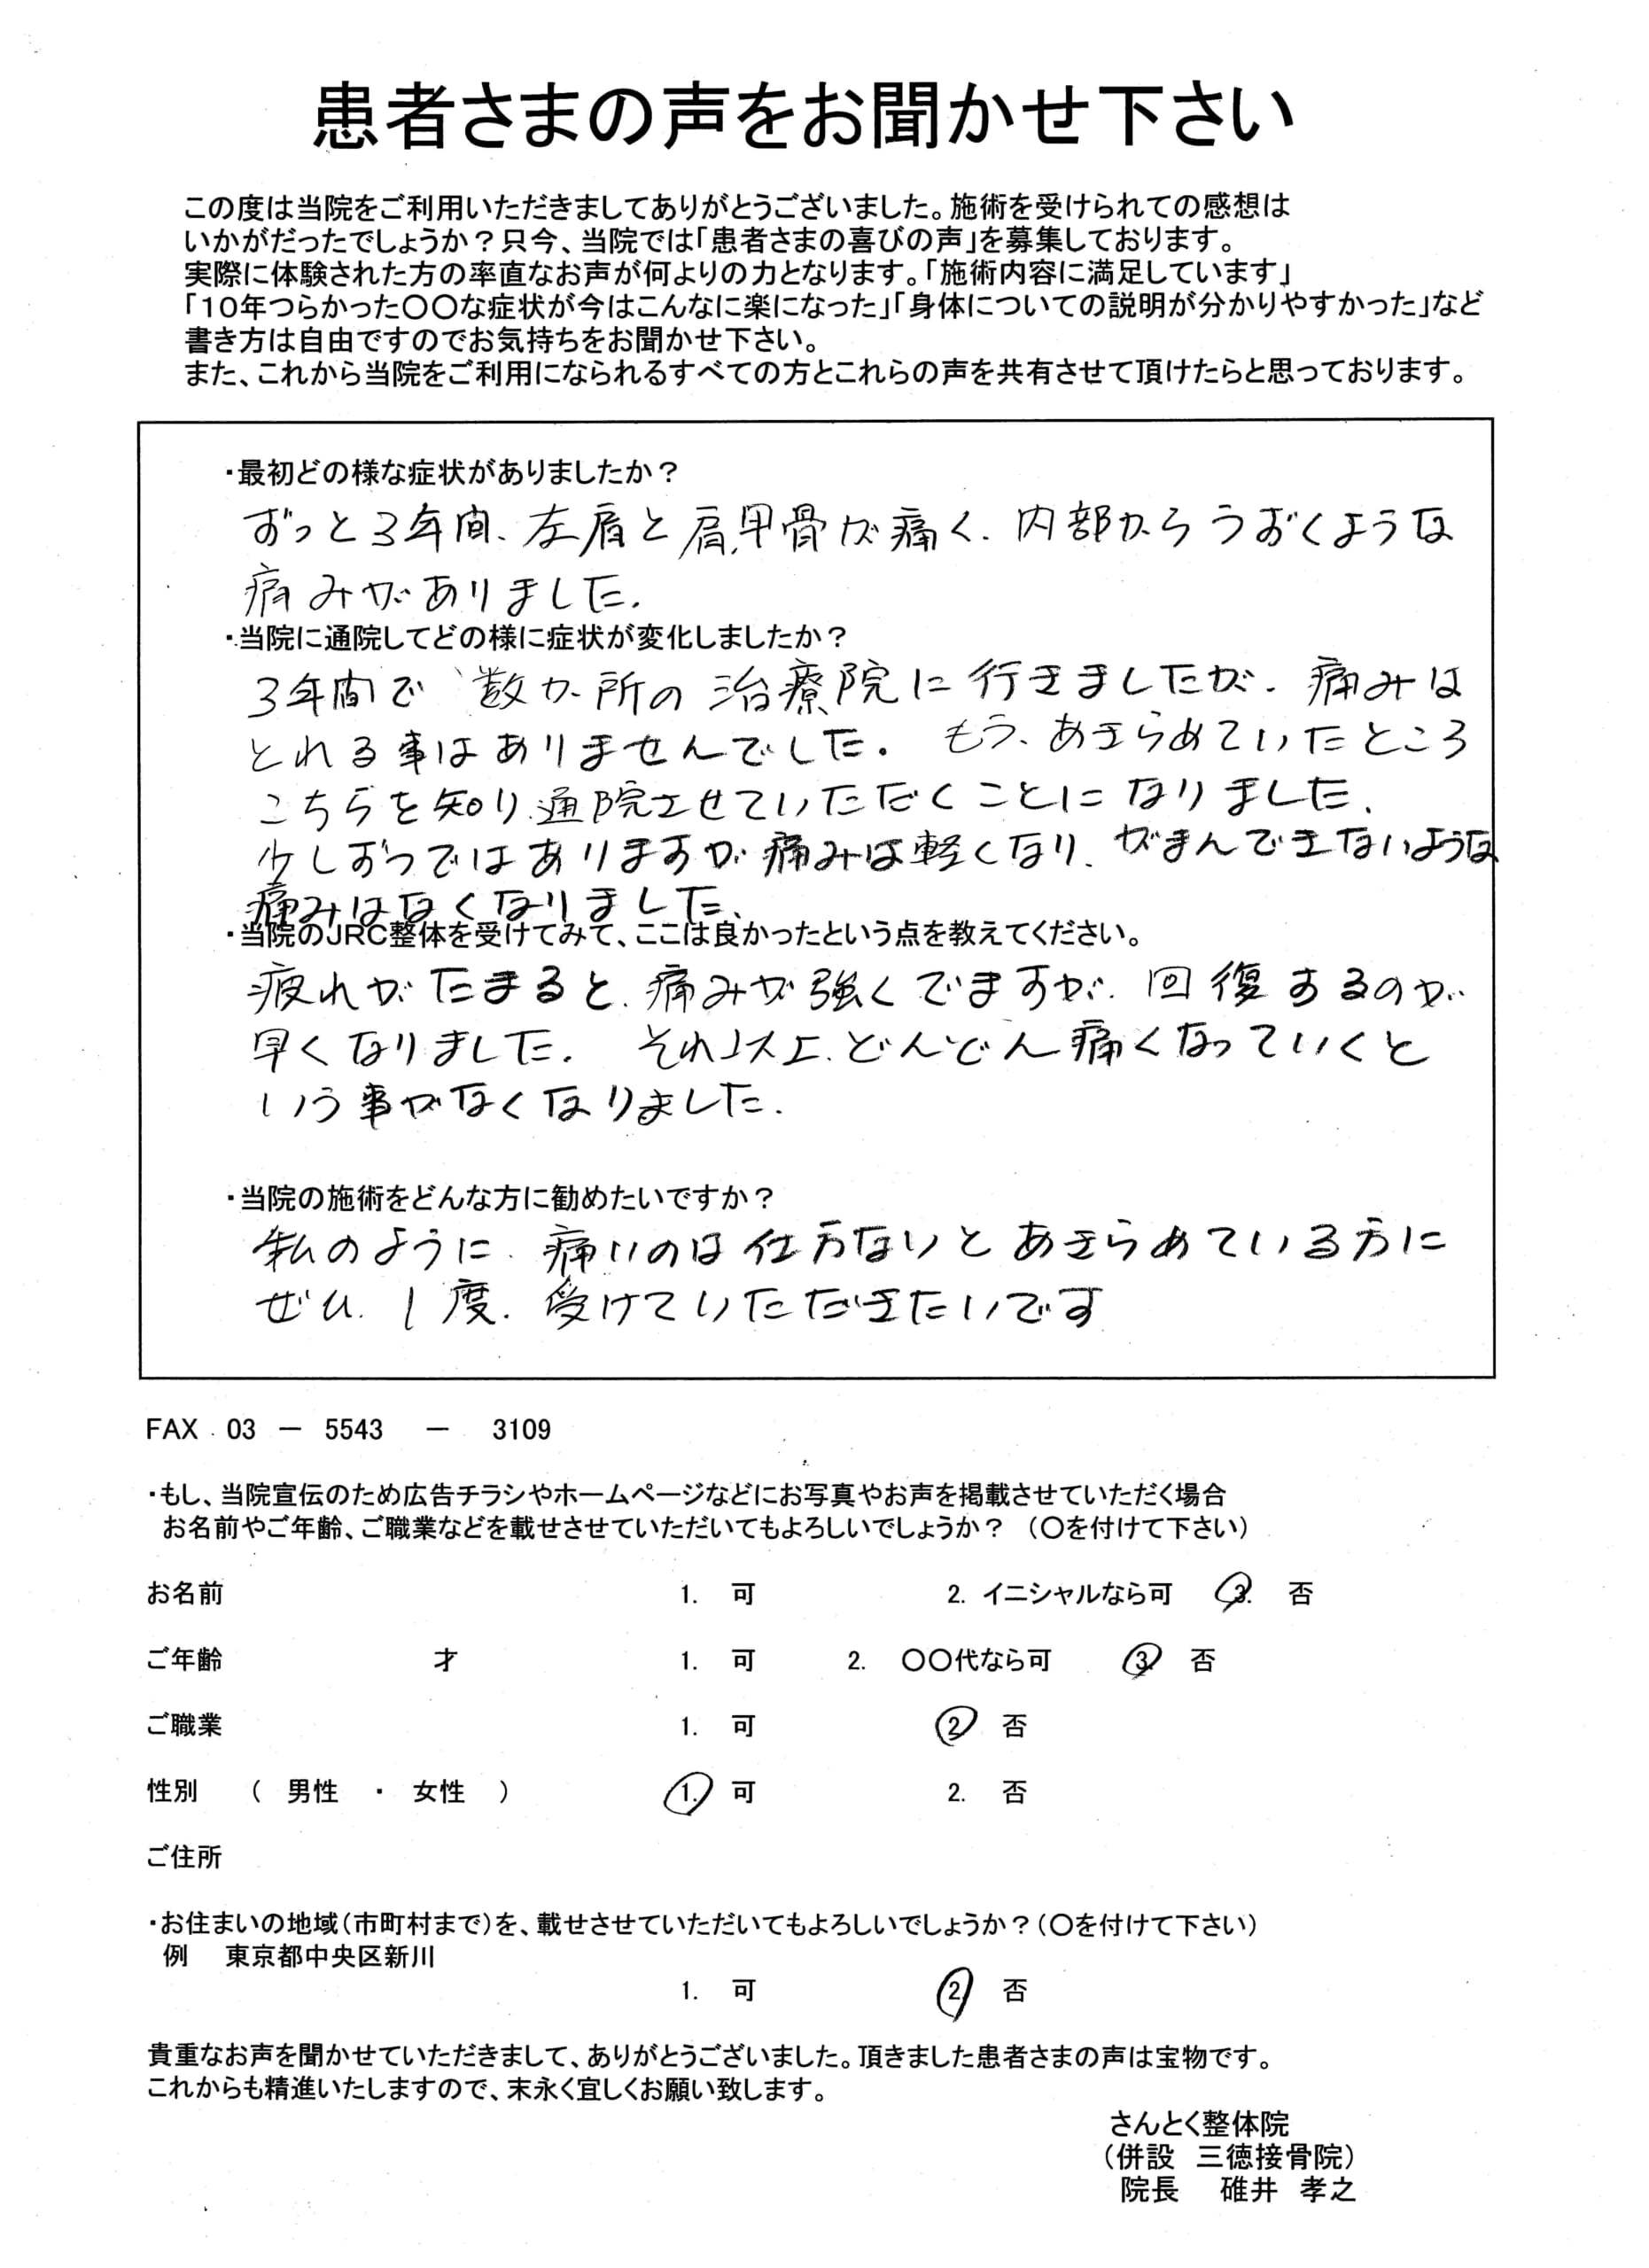 患者さまの声をお聞かせ下さい
この度は当院をご利用いただきましてありがとうございました。施術を受けられての感想は
いかがだったでしょうか？只今、当院では「患者さまの喜びの声」を募集しております。
実際に体験された方の率直なお声が何よりの力となります。「施術内容に満足しています」
「10年つらかった〇〇な症状が今はこんなに楽になった」「身体についての説明が分かりやすかった」など
書き方は自由ですのでお気持ちをお聞かせ下さい。
また、これから当院をご利用になられるすべての方とこれらの声を共有させて頂けたらと思っております。
・最初どの様な症状がありましたか？
ずっと3年間、左肩と肩甲骨が痛く、内部からうずくような
痛みがありました。
・当院に通院してどの様に症状が変化しましたか？
3年間で数か所の治療院に行きましたが、痛みは
とれる事はありませんでした。もう、あきらめていたところ
こちらを知り、通院させていただくことになりました。
少しずつではありますが痛みは軽くなり、がまんできないような
痛みはなくなりました。
・当院のJRC整体を受けてみて、ここは良かったという点を教えてください。
疲れがたまると、痛みが強くでますが、回復するのが
早くなりました。それ以上、どんどん痛くなっていくと
いう事がなくなりました。
・当院の施術をどんな方に勧めたいですか？
私のように、痛いのは仕方ないとあきらめている方に
ぜひ、1度、受けていただきたいです
FAX 03 － 5543 － 3109
・もし、当院宣伝のため広告チラシやホームページなどにお写真やお声を掲載させていただく場合
お名前やご年齢、ご職業などを載せさせていただいてもよろしいでしょうか？（〇を付けて下さい）
お名前 1. 可 2. イニシャルなら可 3. 否
ご年齢 才 1. 可 2. 〇〇代なら可 3. 否
ご職業 1. 可 2. 否
性別 （ 男性 ・ 女性 ） 1. 可 2. 否
ご住所
・お住まいの地域（市町村まで）を、載せさせていただいてもよろしいでしょうか？（〇を付けて下さい）
例 東京都中央区新川
1. 可 2. 否
貴重なお声を聞かせていただきまして、ありがとうございました。頂きました患者さまの声は宝物です。
これからも精進いたしますので、末永く宜しくお願い致します。
さんとく整体院
（併設 三徳接骨院）
院長 碓井 孝之